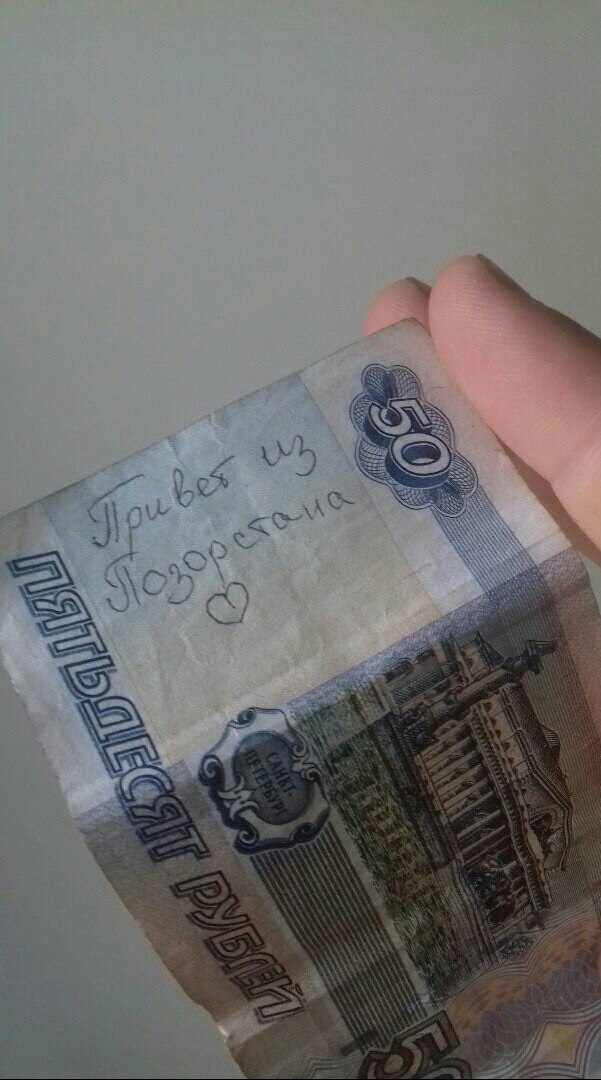 50
Привет из
Позорстана
♡
ПЯТЬДЕСЯТ РУБЛЕЙ
САНКТ-
ПЕТЕРБУРГ
50